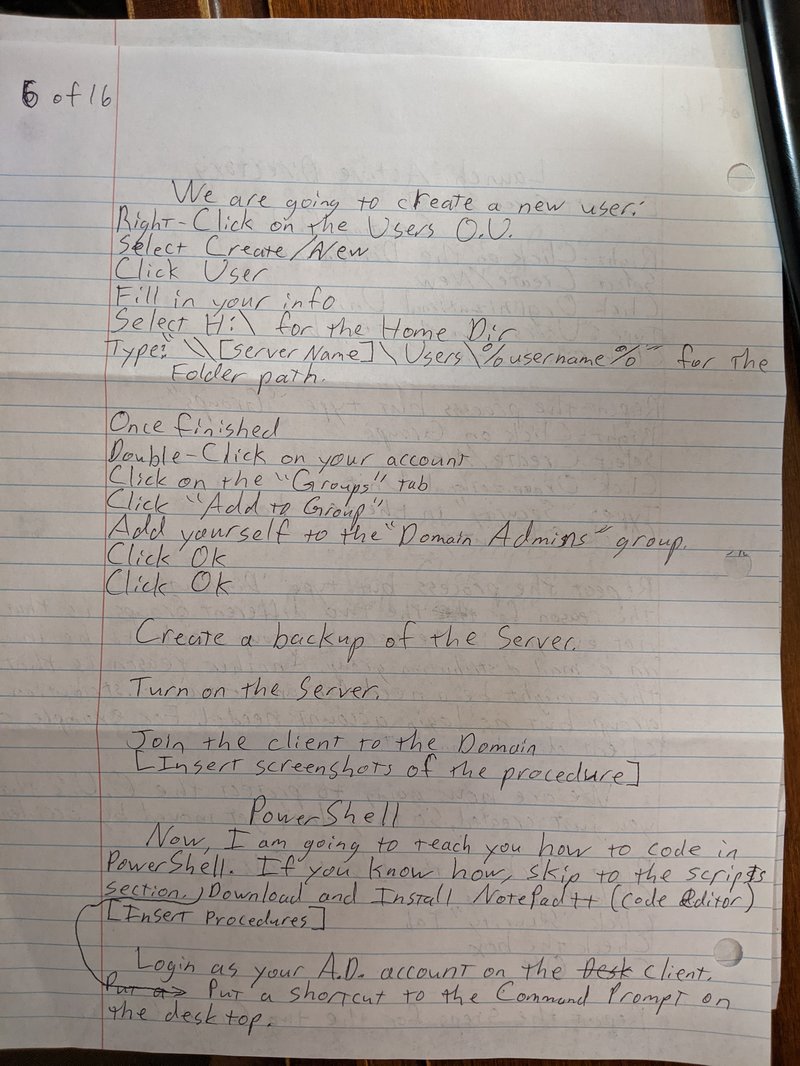 6 of 16
We are going to create a new user:
Right-Click on the Users O.U.
Select Create/New
Click User
Fill in your info
Select H:\ for the Home Dir
Type: "\\[Server Name]\Users\%username%" for the
Folder path.
Once finished
Double-Click on your account
Click on the "Groups" tab
Click "Add to Group"
Add yourself to the "Domain Admins" group.
Click Ok
Click Ok
Create a backup of the Server.
Turn on the Server.
Join the client to the Domain
[Insert screenshots of the procedure]
PowerShell
Now, I am going to teach you how to code in
PowerShell. If you know how, skip to the scripts
section. Download and Install NotePad++ (Code Editor)
[Insert Procedures]
Login as your A.D. account on the Desk client.
Put a Put a shortcut to the Command Prompt on
the desktop.